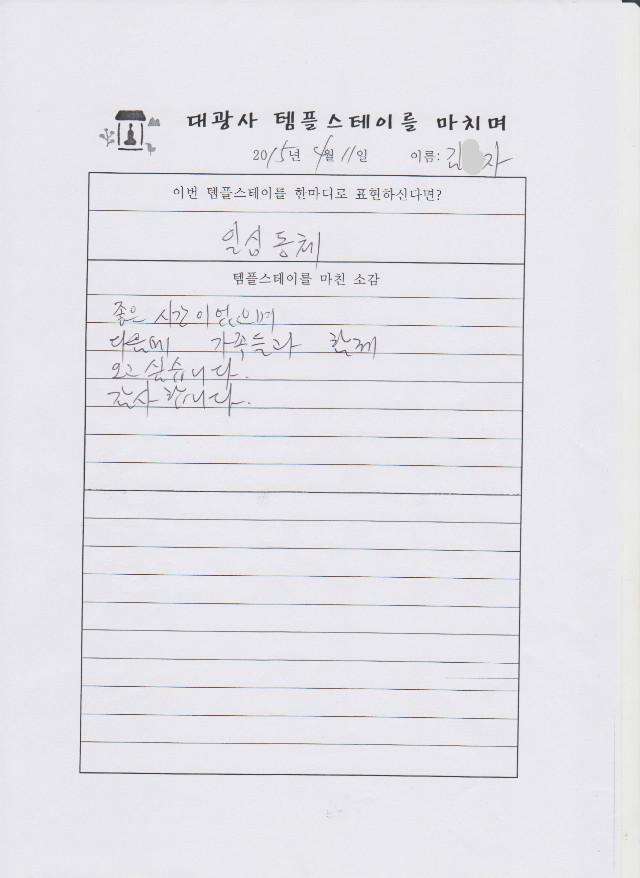 대광사 템플스테이를 마치며
2015년 4월 11일 이름: 김 자
이번 템플스테이를 한마디로 표현하신다면?
일심동체
템플스테이를 마친 소감
좋은 시간이었으며
다음에 가족들과 함께
오고 싶습니다.
감사합니다.